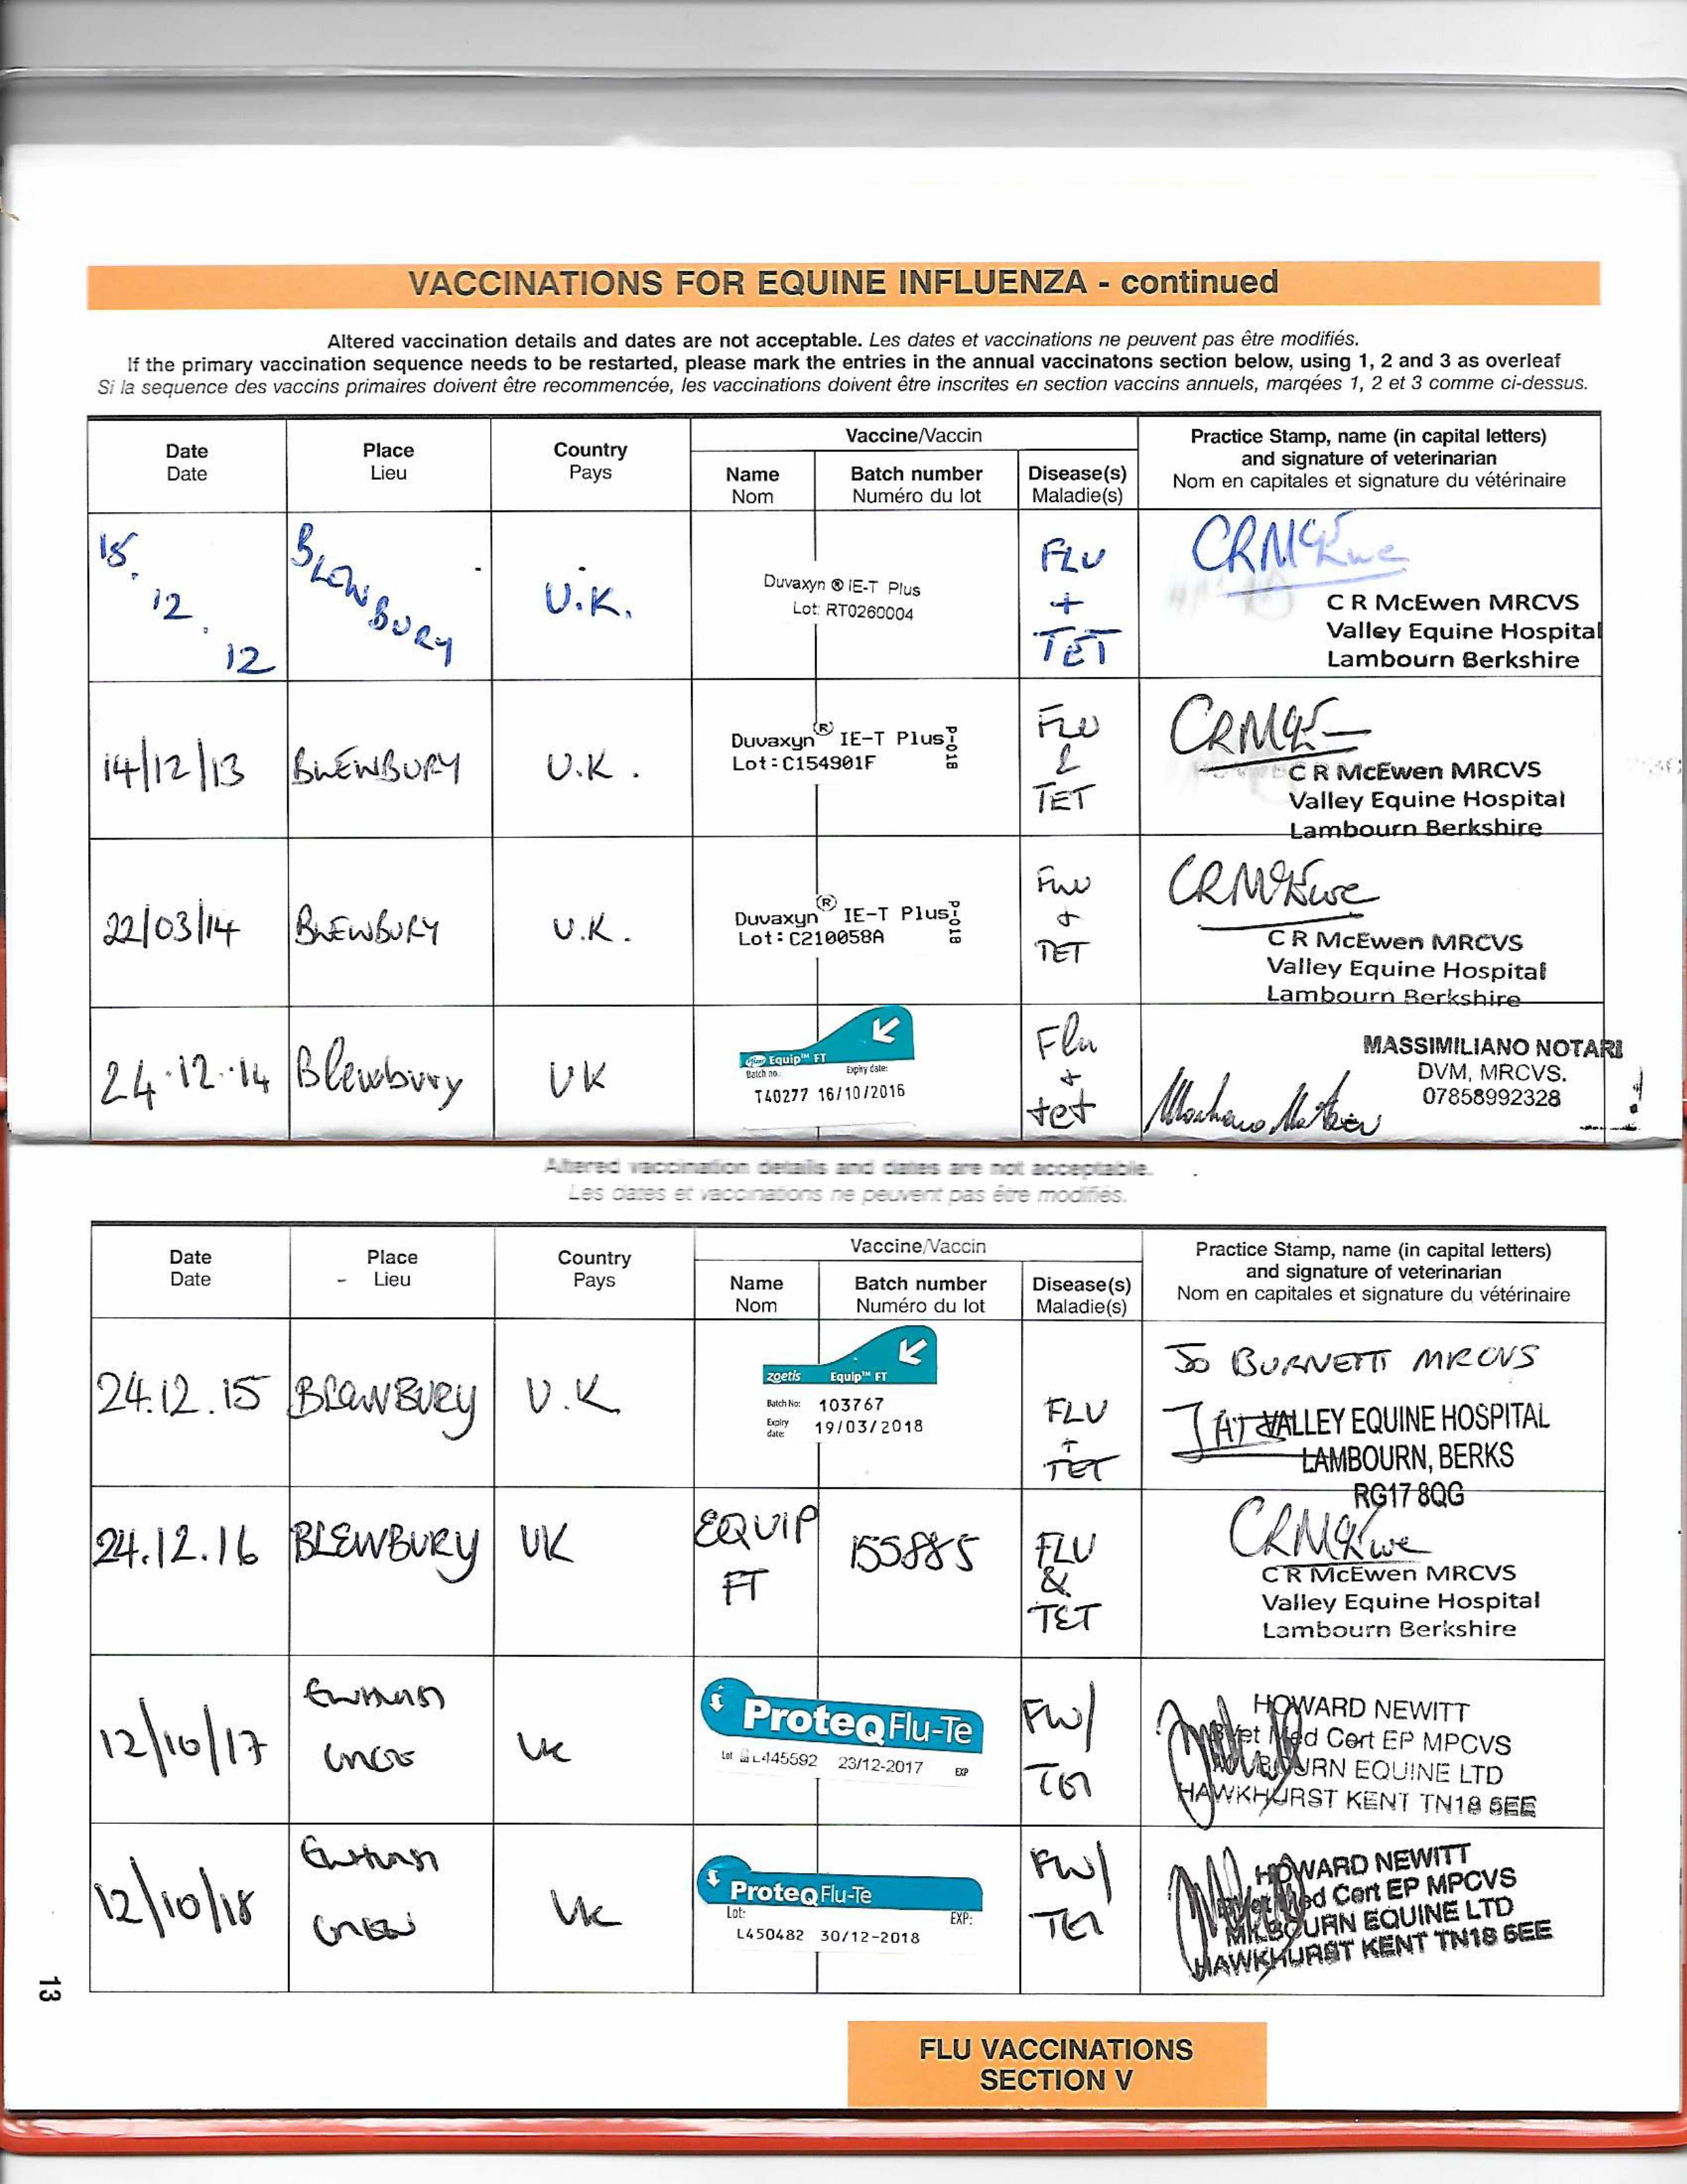 VACCINATIONS FOR EQUINE INFLUENZA - continued
Altered vaccination details and dates are not acceptable. Les dates et vaccinations ne peuvent pas être modifiés.
If the primary vaccination sequence needs to be restarted, please mark the entries in the annual vaccinatons section below, using 1, 2 and 3 as overleaf
Si la sequence des vaccins primaires doivent être recommencée, les vaccinations doivent être inscrites en section vaccins annuels, marqées 1, 2 et 3 comme ci-dessus.
Date Place Country Vaccine/Vaccin Practice Stamp, name (in capital letters)
Date Lieu Pays and signature of veterinarian
Name Batch number Disease(s) Nom en capitales et signature du vétérinaire
Nom Numéro du lot Maladie(s)
15. 12. 12 BLEWBURY U.K. Duvaxyn ® IE-T Plus FLU + TET CRMcEwe
Lot: RT0260004
C R McEwen MRCVS
Valley Equine Hospital
Lambourn Berkshire
14/12/13 BLEWBURY U.K. Duvaxyn ® IE-T Plus P-01B FLU & TET
Lot: C154901F
C R McEwen MRCVS
Valley Equine Hospital
Lambourn Berkshire
22/03/14 BLEWBURY U.K. Duvaxyn ® IE-T Plus P-01B FLU + TET CRMcEwe
Lot: C210058A
C R McEwen MRCVS
Valley Equine Hospital
Lambourn Berkshire
24.12.14 Blewbury UK Equip™ FT Flu + tet
Batch no.: Expiry date:
T40277 16/10/2016
MASSIMILIANO NOTARI
DVM, MRCVS.
07858992328
Altered vaccination details and dates are not acceptable.
Les dates et vaccinations ne peuvent pas être modifiés.
Date Place Country Vaccine/Vaccin Practice Stamp, name (in capital letters)
Date Lieu Pays and signature of veterinarian
Name Batch number Disease(s) Nom en capitales et signature du vétérinaire
Nom Numéro du lot Maladie(s)
24.12.15 BLEWBURY U.K zoetis Equip™ FT FLU + TET JO BURNETT MRCVS
Batch No: 103767
Expiry date: 19/03/2018
VALLEY EQUINE HOSPITAL
LAMBOURN, BERKS
RG17 8QG
24.12.16 BLEWBURY UK EQUIP FT 155885 FLU & TET CRMcEwe
C R McEwen MRCVS
Valley Equine Hospital
Lambourn Berkshire
12/10/17 UK ProteqFlu-Te FLU/ TET
Lot L445592 23/12-2017 EXP
HOWARD NEWITT
Med Cert EP MPCVS
EQUINE LTD
HAWKHURST KENT TN18 5EE
12/10/18 UK ProteqFlu-Te FLU/ TET
Lot: EXP:
L450482 30/12-2018
HOWARD NEWITT
Med Cert EP MPCVS
EQUINE LTD
HAWKHURST KENT TN18 5EE
13
FLU VACCINATIONS
SECTION V